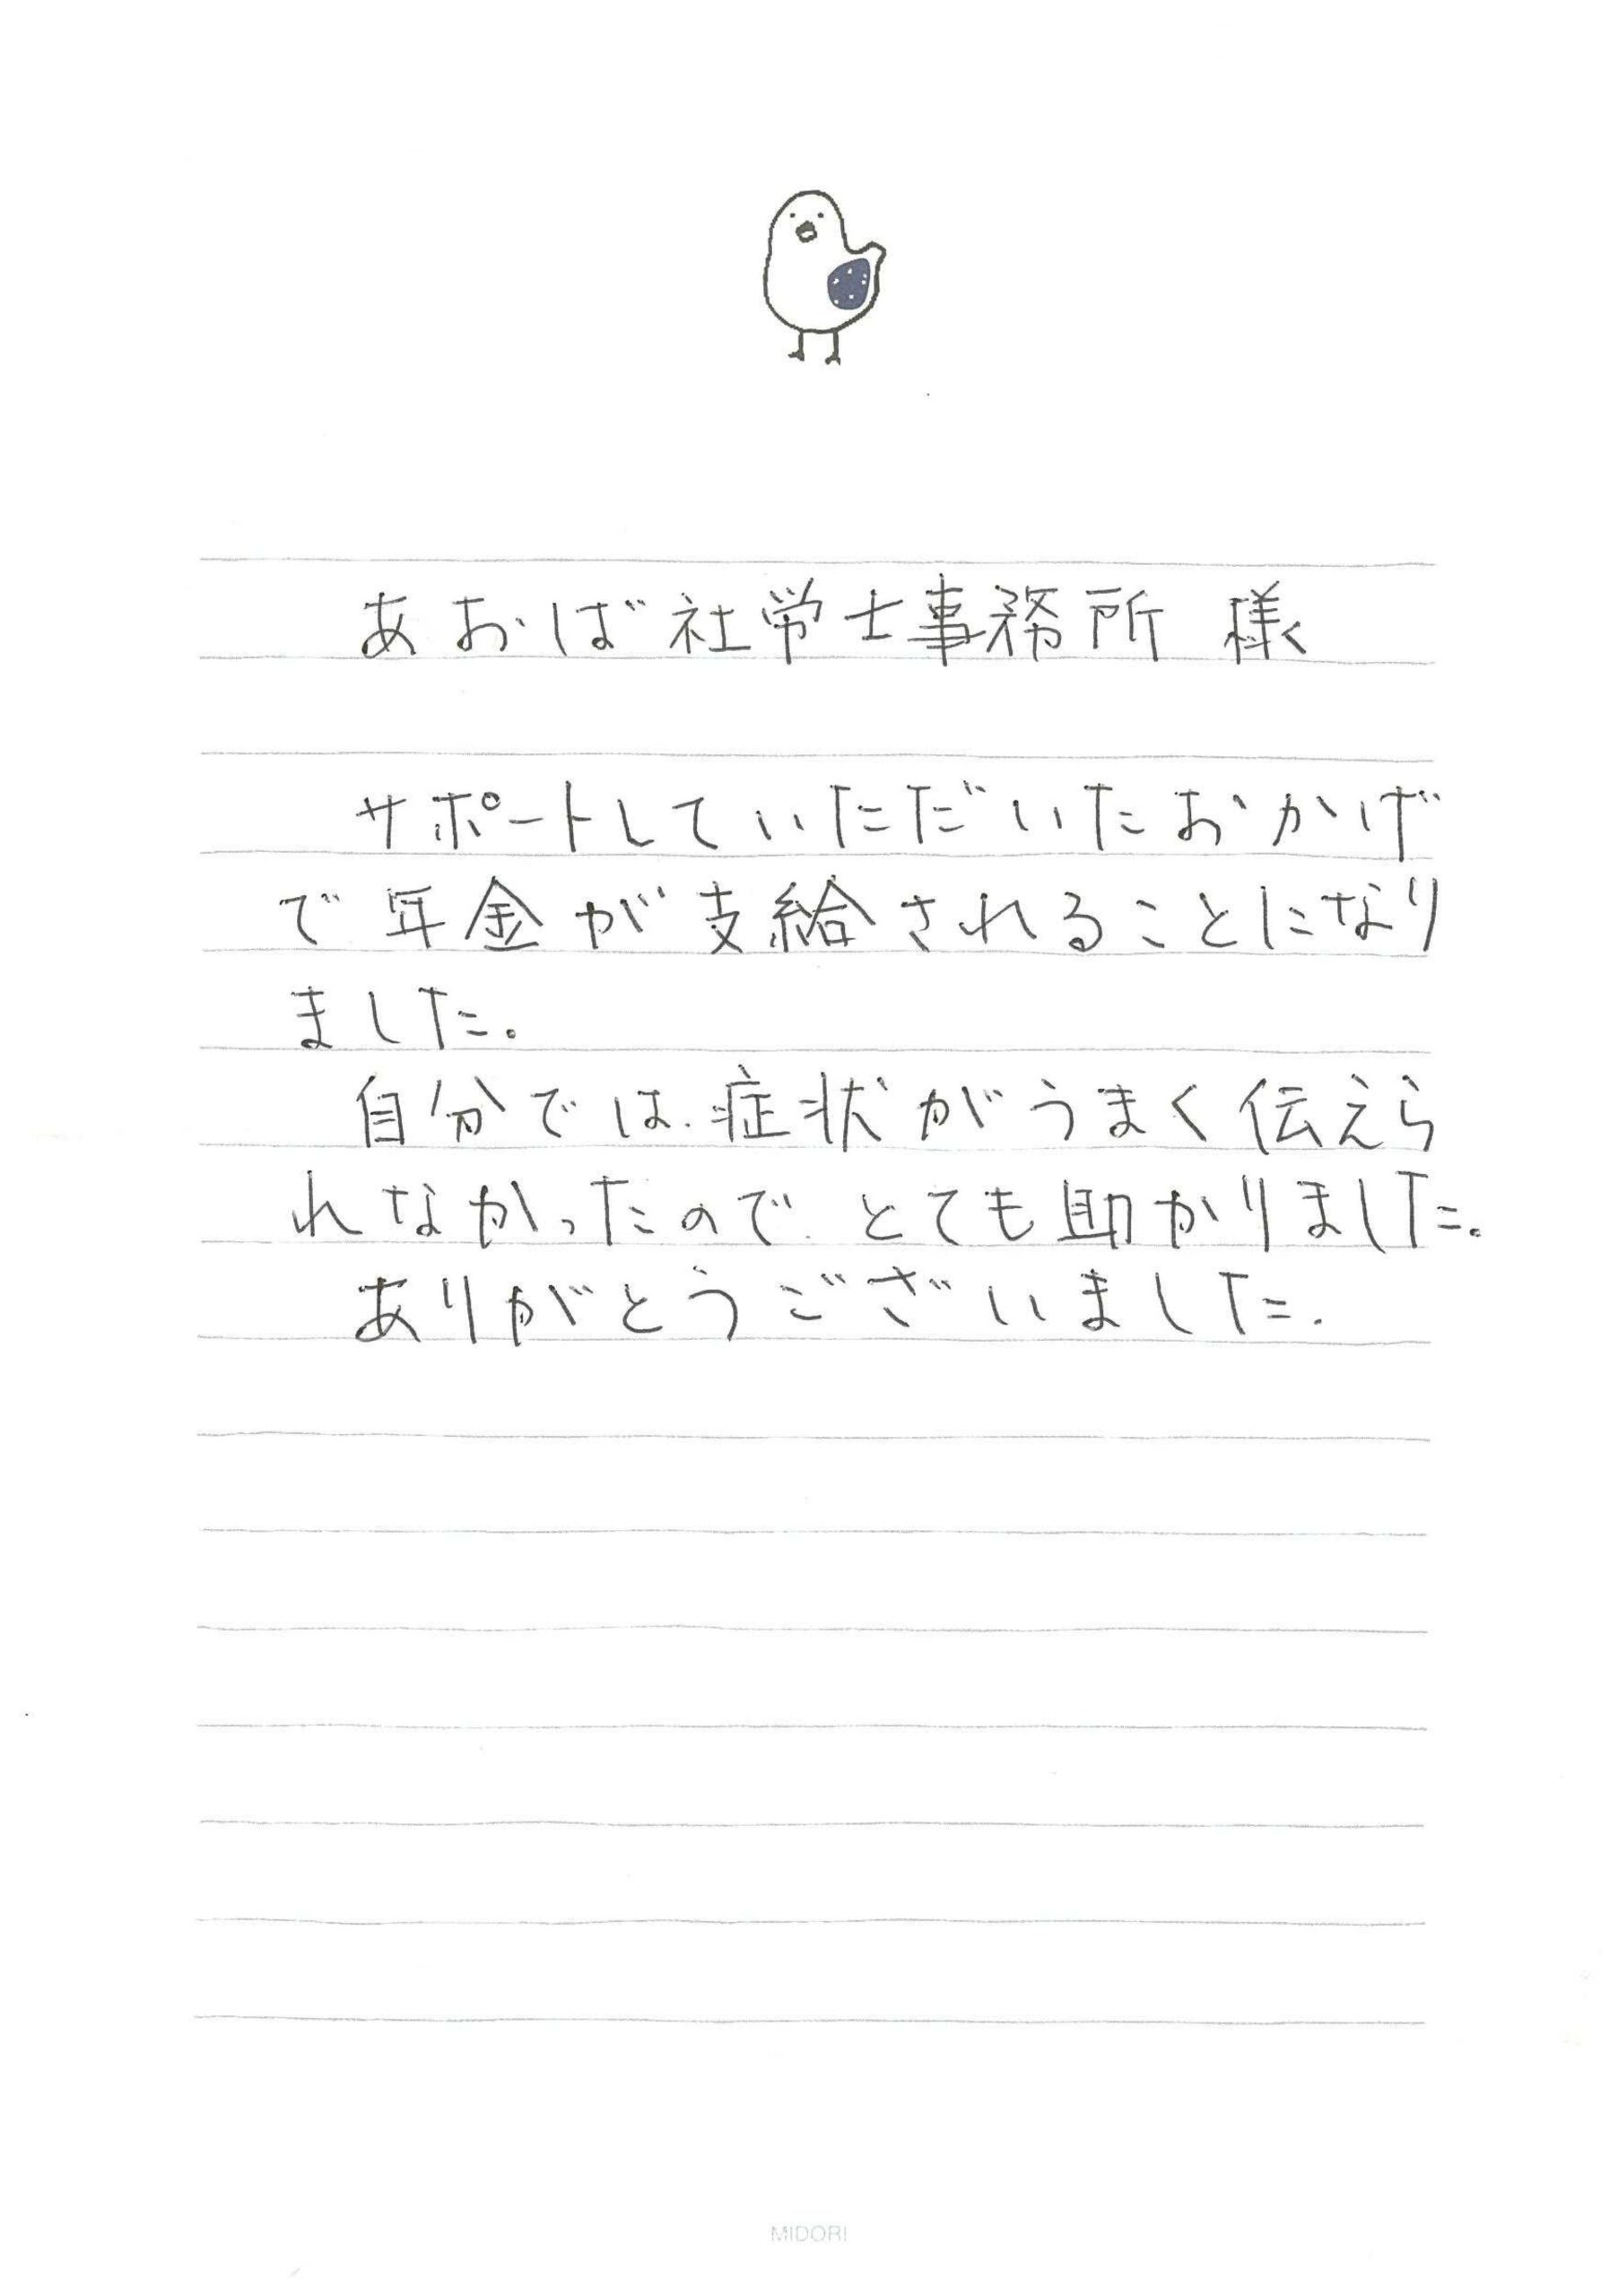 あおば社労士事務所 様
サポートしていただいたおかげ
で年金が支給されることになり
ました。
自分では、症状がうまく伝えら
れなかったので、とても助かりました。
ありがとうございました。
MIDORI